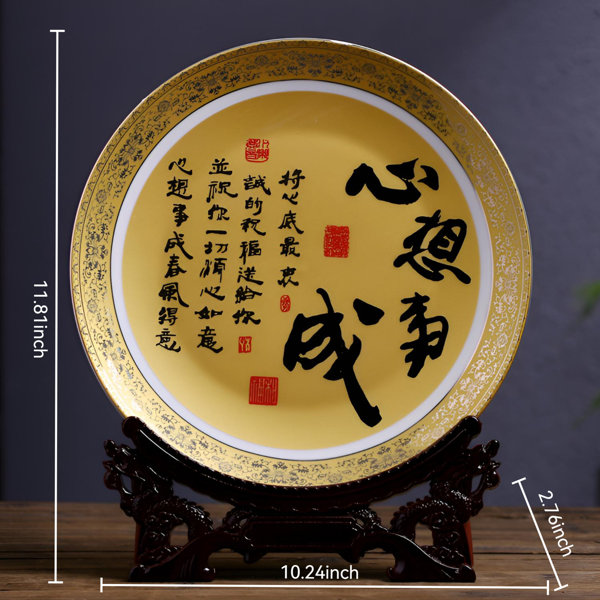 心想事
成
将心底最衷
誠的祝福送給你
並祝你一切順心如意
心想事成春風得意
11.81inch
10.24inch
2.76inch